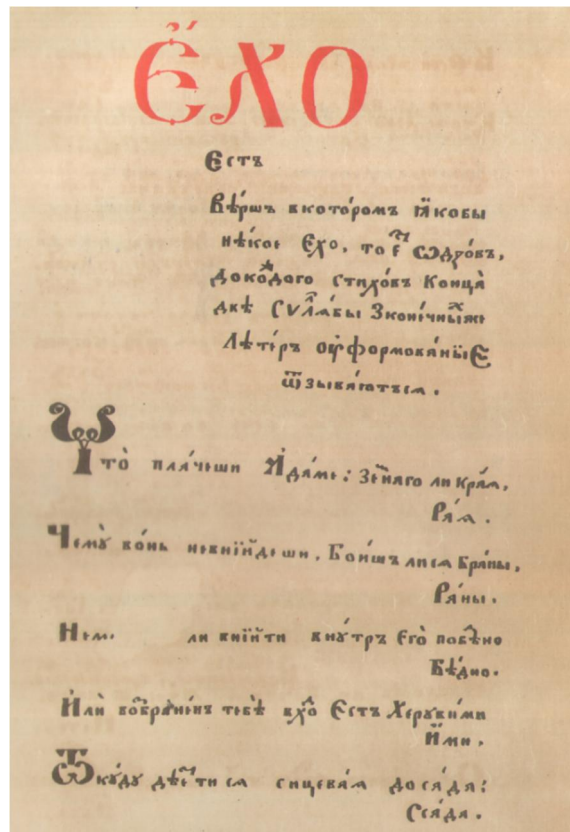 Є҆ХО
Єстъ
Ве́ршъ вкото́ромъ ꙗ҆́кобы
нѣ́кое Єхо, то є҆ст̾ ѿдꙋ́хо́въ,
докождого стихо́въ Конца̀
двѣ Сѵлля́бы Зконе́чныхже
Лѣте́ръ оуформова́нїи Є
ѿзыва́ютъся.
Что̀ пла́чеши А҆да́ме: Зе́мнаго ли кра́я,
Ра́я.
Чемꙋ̀ во́нь невни́йдеши, Бои́шъ лися бра́ны,
Ра́ны.
Нем. ли вни́йти внꙋ́тръ Єго̀ побѣ́дно
Бѣ́дно.
И҆лѝ возбране́нъ тебѣ̀ вхо́д Єстъ Херꙋви́ми
И҆́ми.
Ѿкꙋ́дꙋ дѣ́етися сицева́я доса́да:
Сса́да.